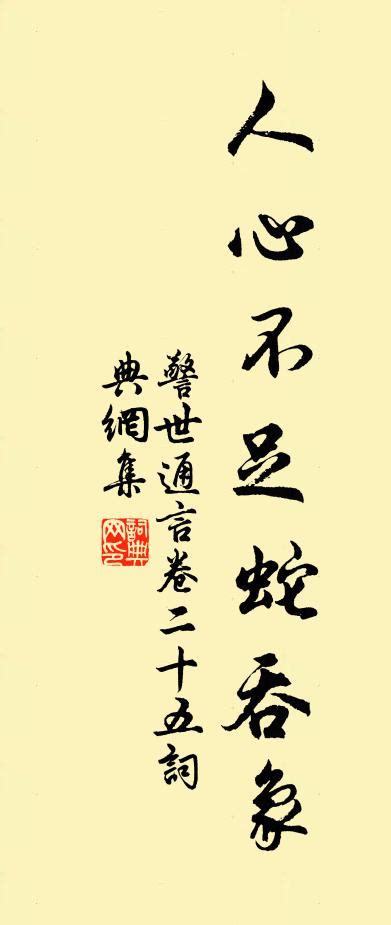 人心不足蛇吞象
警世通言卷二十五詞
典網集
詞典
网印